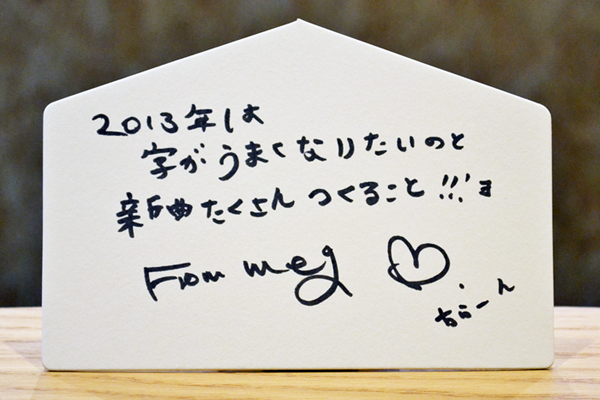 2013年は
字がうまくなりたいのと
新曲たくさん つくること!!!
From meg ♡